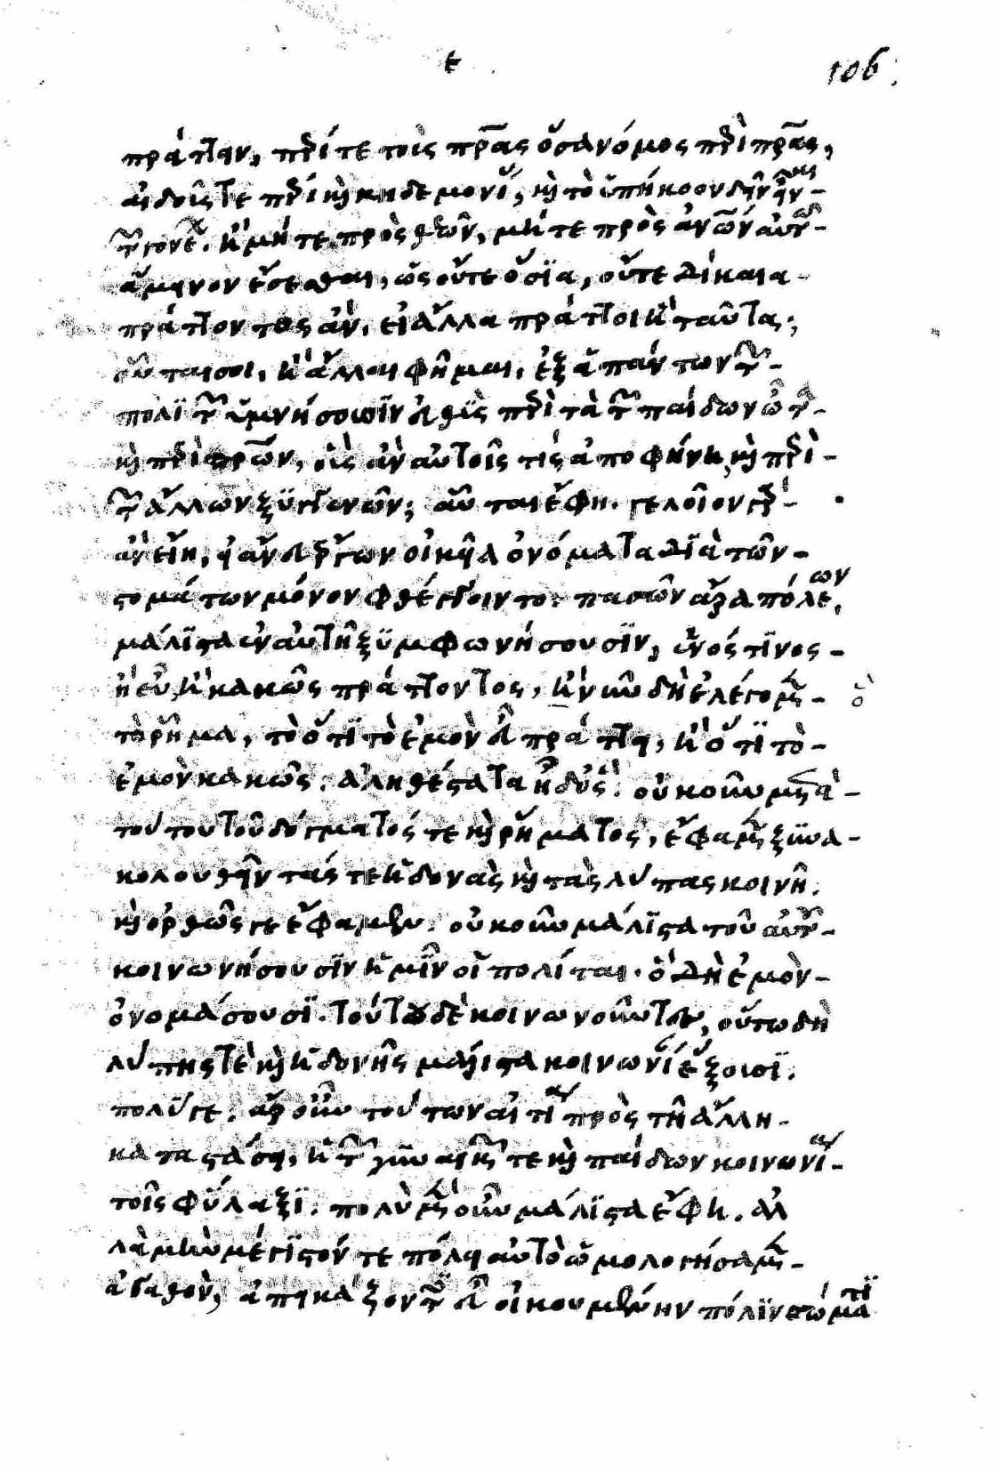 ε 106
πράττειν, περί τε τοὺς πρας ὅσα νόμος περὶ πρας,
αἰδοῦς τε πέρι καὶ κηδεμονί, καὶ τὸ ὑπήκοον δεῖν εἶναι
τῶν γονέ. ἢ μήτε πρὸς θεῶν, μήτε πρὸς ἀνων αὐτῷ
ἄμεινον ἔσεσθαι, ὡς οὔτε ὅσια, οὔτε δίκαια
πράττοντος ἂν, εἰ ἄλλα πράττοι ἢ ταῦτα;
αὗταί σοι, ἢ ἄλλαι φῆμαι, ἐξ ἁπάντων τῶν
πολιτῶν ὑμνήσουσιν εὐθὺς περὶ τὰ τῶν παίδων ὦτα
καὶ περὶ πρων, οὓς ἂν αὐτοῖς τις ἀποφήνῃ, καὶ περὶ
τῶν ἄλλων ξυγγενῶν; αὗται ἔφη. γελοῖον γὰρ
ἂν εἴη, εἰ ἄνευ ἔργων οἰκεῖα ὀνόματα διὰ τῶν
στομάτων μόνον φθέγγοιντο. πασῶν ἄρα πόλεων,
μάλιστα ἐν αὐτῇ ξυμφωνήσουσιν, ἑνός τινος
ἢ εὖ, ἢ κακῶς πράττοντος, ὃ νῦν δὴ ἐλέγομεν
τὸ ῥῆμα, τὸ ὅτι τὸ ἐμὸν εὖ πράττει, ἢ ὅτι τὸ
ἐμὸν κακῶς. ἀληθέστατα ἦ δ' ὅς. οὐκοῦν μετὰ
τούτου τοῦ δόγματός τε καὶ ῥήματος, ἔφαμεν ξυνα
κολουθεῖν τάς τε ἡδονὰς καὶ τὰς λύπας κοινῇ.
καὶ ὀρθῶς γε ἔφαμεν. οὐκοῦν μάλιστα τοῦ αὐτοῦ
κοινωνήσουσιν ἡμῖν οἱ πολίται. ὃ δὴ ἐμὸν
ὀνομάσουσι. τούτου δὲ κοινωνοῦντες, οὕτω δὴ
λύπης τε καὶ ἡδονῆς μάλιστα κοινωνί ἕξουσι.
πολύ γε. ἆρ' οὖν τούτων αἰτία πρὸς τῇ ἄλλῃ
καταστάσει, ἡ τῶν γυναικῶν τε καὶ παίδων κοινωνία
τοῖς φύλαξι. πολὺ μὲν οὖν μάλιστα ἔφη. ἀλ
λὰ μὴν μέγιστόν τε πόλει αὐτὸ ὡμολογήσαμεν
ἀγαθὸν, ἀπεικάζοντες εὖ οἰκουμένην πόλιν σώματι